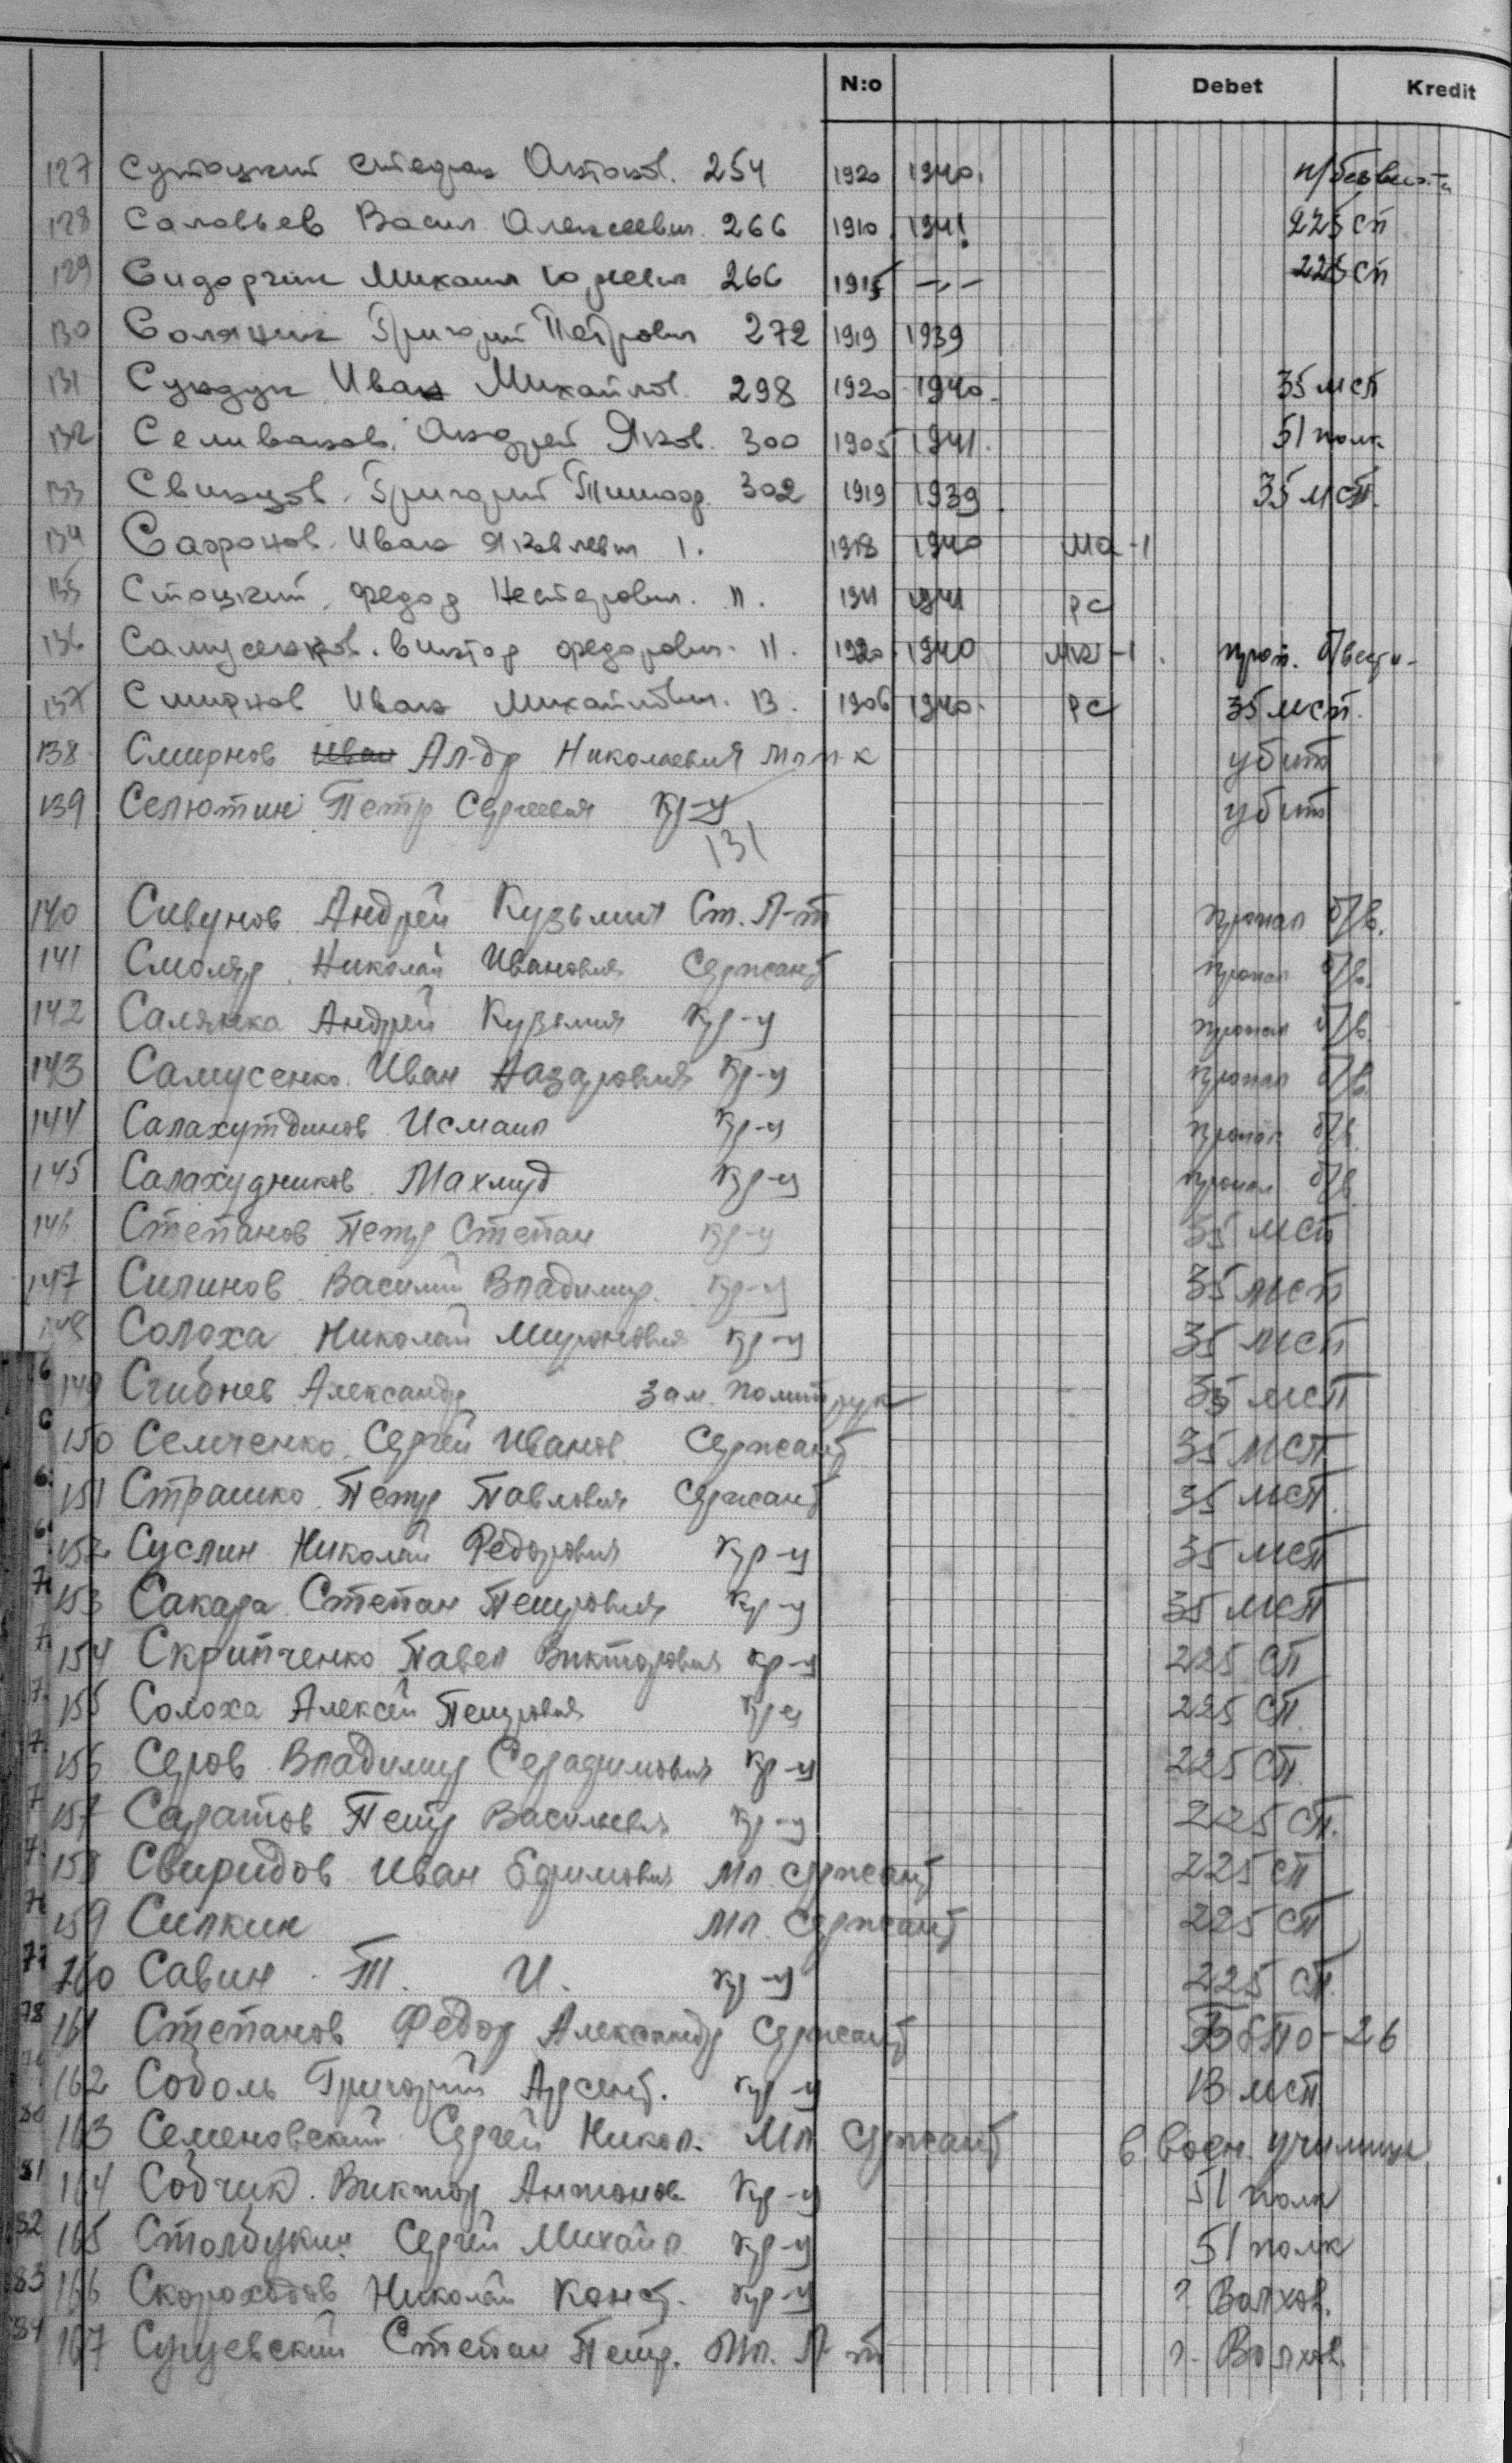 N:o Debet Kredit
127 Сутоцкий Степан Антонов. 254 1920 1940. п/безвести
128 Саловьев Васил Алексеевич. 266 1910 1941. 225 сп
129 Сидорчик Михаил Юрьевич 266 1915 —"— 225 сп
130 Соляник Григорий Петрович 272 1919 1939
131 Сундук Иван Михайлов. 298 1920 1940. 35 мсп
132 Селиванов. Андрей Яков. 300 1905 1941. 51 полк
133 Свинцов. Григорий Тимоф. 302 1919 1939. 35 мсп.
134 Сафронов. Иван Яковлевич 1. 1918 1940 МО-1
135 Стоцкий. Федор Нестерович. 11. 1911 1941 РС
136 Самусенков. Виктор Федорович. 11. 1920 1940 МК-1. проп. б/вести.
137 Смирнов Иван Михайлович. 13. 1906 1940. РС 35 мсп.
138 Смирнов Иван Ал-др Николаевич убит
139 Селютин Петр Сергеевич кр-ц убит
131
140 Сивунов Андрей Кузьмич Ст. Л-т пропал б/в.
141 Смоляр Николай Иванович Сержант пропал б/в.
142 Салянка Андрей Кузьмич кр-ц пропал б/в.
143 Самусенко Иван Назарович кр-ц пропал б/в.
144 Салахутдинов Исмаил кр-ц пропал б/в.
145 Салахудников Махмуд кр-ц пропал б/в.
146 Степанов Петр Степан кр-ц 35 мсп
147 Силинов Василий Владимир. кр-ц 35 мсп
148 Солоха Николай Миронович кр-ц 35 мсп
149 Сгибнев Александр зам. политрук 35 мсп
150 Семченко Сергей Иванов Сержант 35 мсп
151 Страшко Петр Павлович Сержант 35 мсп.
152 Суслин Николай Федорович кр-ц 35 мсп
153 Сакара Степан Петрович кр-ц 35 мсп
154 Скрипченко Павел Викторович кр-ц 225 сп
155 Солоха Алексей Петрович кр-ц 225 сп.
156 Серов Владимир Серафимович кр-ц 225 сп.
157 Саратов Петр Васильевич кр-ц 225 сп.
158 Свиридов Иван Ефимович Мл. сержант 225 сп
159 Силкин Мл. Сержант 225 сп
77 160 Савин Т. И. кр-ц 225 сп.
78 161 Степанов Федор Александр Сержант ОБТО-26
162 Соболь Григорий Арсент. кр-ц 13 мсп
80 163 Семеновский Сергей Никол. Мл. Сержант в воен. училище
81 164 Собчик Виктор Антонов кр-ц 51 полк
82 165 Столбукин Сергей Михайл кр-ц 51 полк
83 166 Скороходов Николай Конст. кр-ц г. Волхов.
84 167 Сущевский Степан Петр. Мл. Л-т г. Волхов.